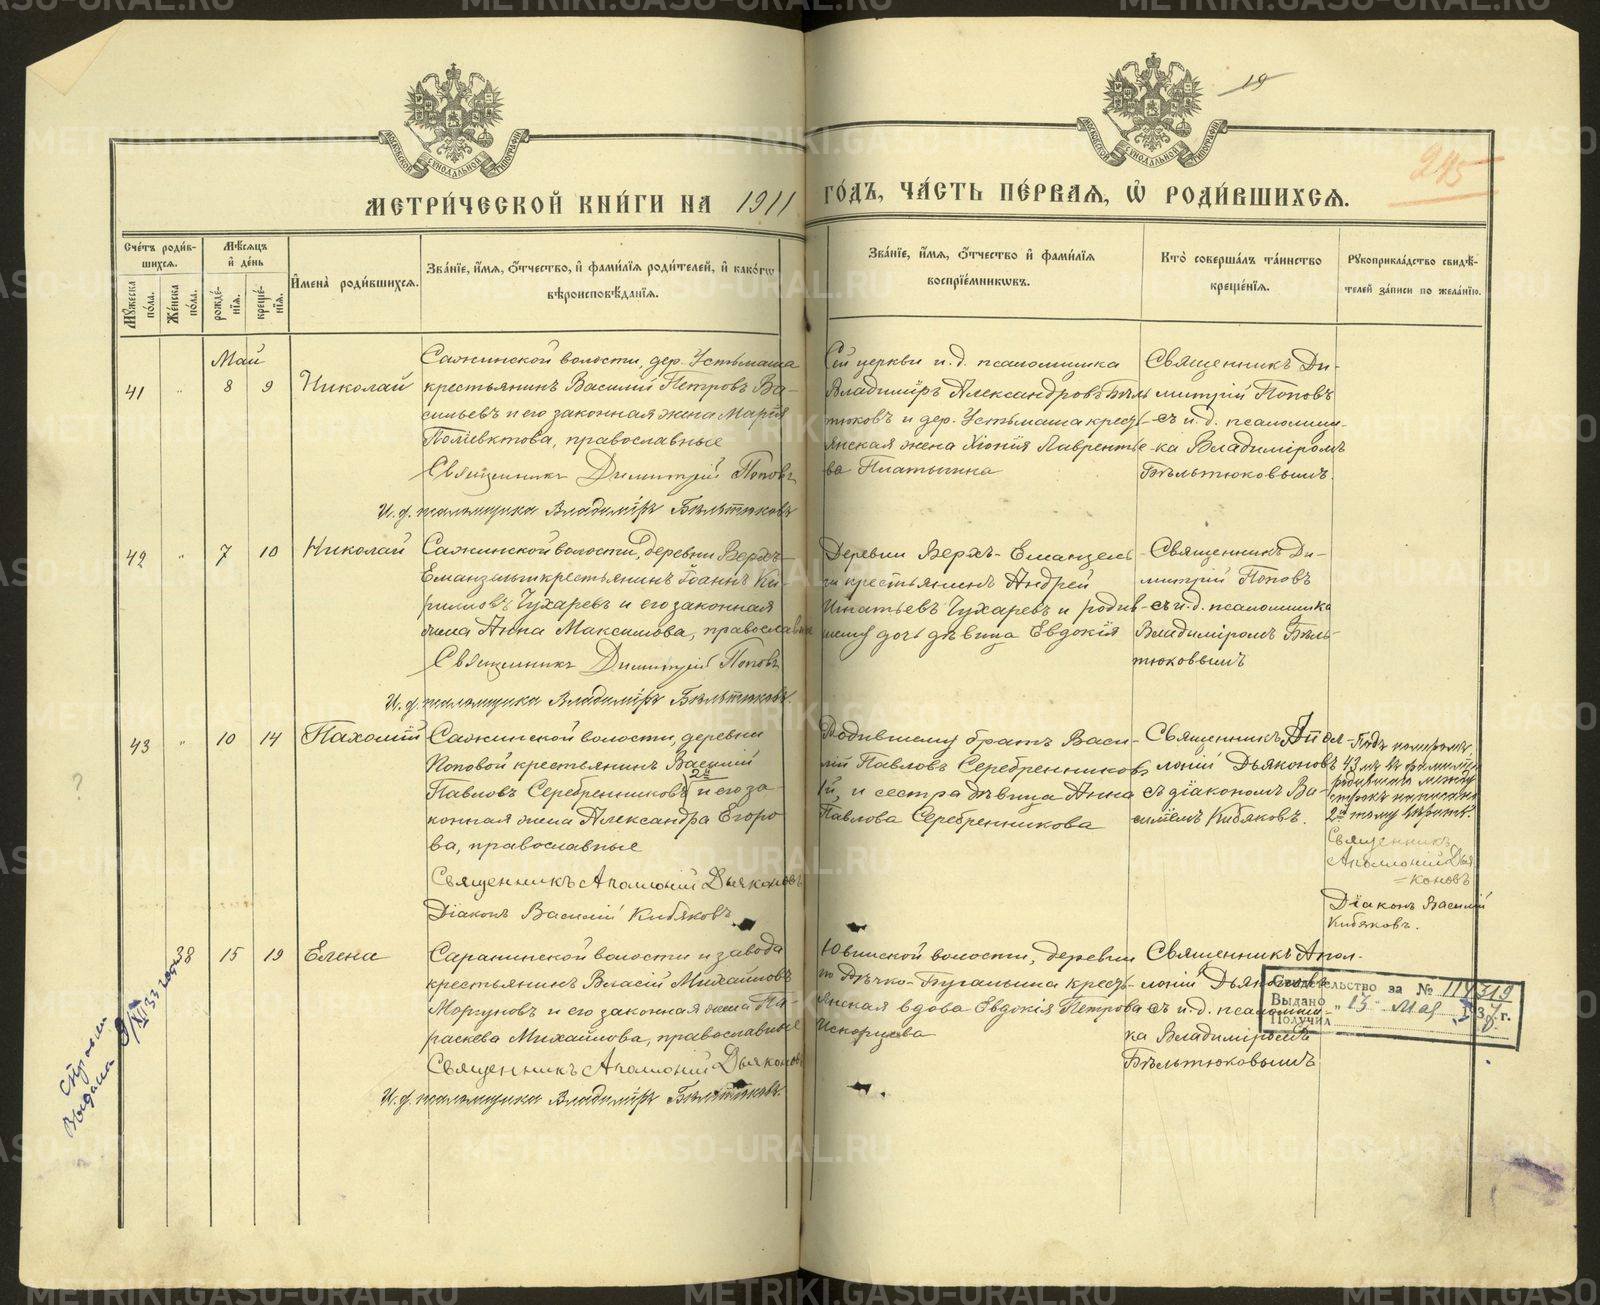 МОСКОВСКОЙ СѴНОДАЛЬНОЙ ТИПОГРАФІИ
МОСКОВСКОЙ СѴНОДАЛЬНОЙ ТИПОГРАФІИ
19
245
МЕТРИ́ЧЕСКОЙ КНИ́ГИ НА 1911 ГО́ДЪ, ЧА́СТЬ ПЕ́РВАЯ, Ѽ РОДИ́ВШИХСЯ.
Сче́тъ роди́в-
шихся.
Мѣ́сяцъ
и҆ де́нь
И҆мена̀ роди́вшихся.
Зва́нїе, и҆́мя, ѻ҆́тчество, и҆ фами́лїя роди́телей, и҆ како́гѡ
вѣроисповѣ́данїя.
Зва́нїе, и҆́мя, ѻ҆́тчество и҆ фами́лїя
воспрїе́мникѡвъ.
Кто̀ соверша́лъ та́инство
креще́нїя.
Рꙋкоприкла́дство свидѣ́-
телей за́писи по жела́нїю.
Мꙋ́жеска
по́ла.
Же́нска
по́ла.
рожде́-
нїя.
креще́-
нїя.
Май
41 " 8 9 Николай
Сажинской волости, дер. Устьмаша
крестьянинъ Василій Петровъ Ва-
сильевъ и его законная жена Марія
Поліевктова, православные
Священникъ Димитрій Поповъ
И. д. псаломщика Владиміръ Бѣльтюковъ
Сей церкви и. д. псаломщика
Владиміръ Александровъ Бѣль
тюковъ и дер. Устьмаша кресть
янская жена Хіонія Лавренть
ева Платыгина
Священникъ Ди-
митрій Поповъ
съ и. д. псаломщи-
ка Владиміромъ
Бѣльтюковымъ.
42 " 7 10 Николай
Сажинской волости, деревни Верхъ-
Еманзельги крестьянинъ Іоаннъ Ки-
рилловъ Чухаревъ и его законная
жена Анна Максимова, православные
Священникъ Димитрій Поповъ
И. д. псаломщика Владиміръ Бѣльтюковъ.
Деревни Верхъ-Еманзель-
ги крестьянинъ Андрей
Игнатьевъ Чухаревъ и родив-
шему дочь дѣвица Евдокія
Священникъ Ди-
митрій Поповъ
съ и. д. псаломщика
Владиміромъ Бѣль-
тюковымъ
43 " 10 14 Пахомій
Сажинской волости, деревни
Поповой крестьянинъ Василій
Павловъ Серебренниковъ 2й и его за-
конная жена Александра Егоро
ва, православные
Священникъ Аполлоній Дьяконовъ
Діаконъ Василій Кибяковъ
Родившему братъ Васи-
лій Павловъ Серебренниковъ
1й, и сестра дѣвица Анна
Павлова Серебренникова
Священникъ Апол-
лоній Дьяконовъ
съ діакономъ Ва-
силіемъ Кибяковъ.
Подъ номеромъ
43 мъ въ фамиліи
родившаго между
строкъ написано
2й тому вѣрить.
Священникъ
Аполлоній Дья
=коновъ
Діаконъ Василій
Кибяковъ.
?
38 15 19 Елена
Саранинской волости и завода
крестьянинъ Власій Михайловъ
Моргуновъ и его законная жена Па-
раскева Михайлова, православные
Священникъ Аполлоній Дьяконовъ
И. д. псаломщика Владиміръ Бѣльтюковъ.
Ювинской волости, деревни
Бугалыша кресть-
янская вдова Евдокія Петрова
Искорцева
Священникъ Апол-
лоній Дьяконовъ
съ и. д. псаломщи-
ка Владиміромъ
Бѣльтюковымъ
Свидетельство за № 114319
Выдано "13" мая г.
Получил
Справка
Выдана
METRIKI.GASO-URAL.RU